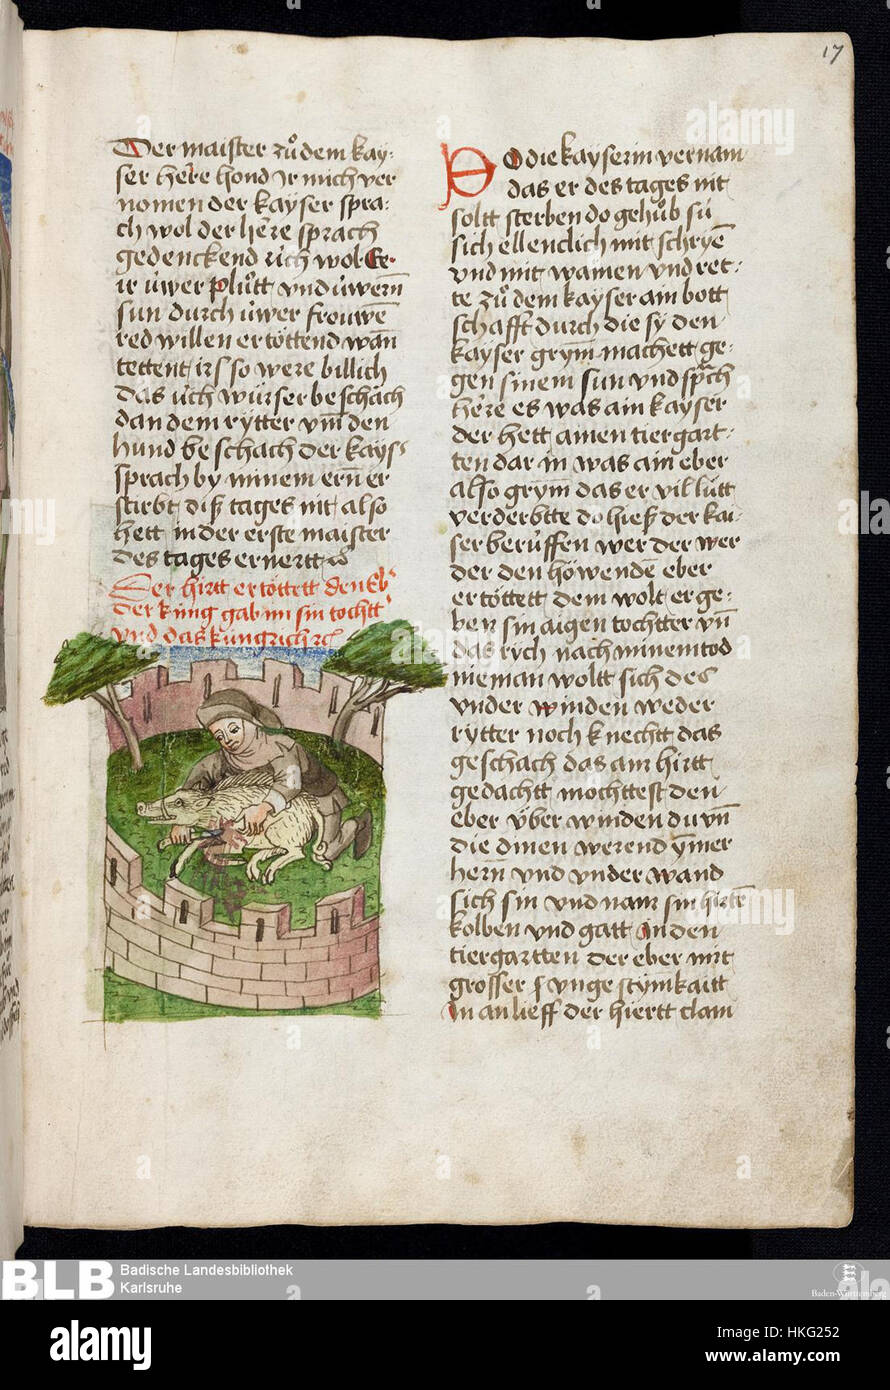 17
Der maister zůdem kay:
ser here hond Ir mich ver
nomen der kayser spra:
ch wol der here sprach
gedenckend üch wol Er:
ir üwer plůtt vnd üwern̄
sun durch üwer frouwē
red willen ertöttend wān
tettent irs so were billich
das üch würser beschäch
dan dem rytter vm̄ den
hund beschach der kays
sprach by minem ern̄ er
stirbt diß tages nit also
hett in der erste maister
des tages ernertt
Der hirtt ertöttett den Eb
der küng gab im sin tochtt
vnd das küngrich rc
DO die kayserin vernam
das er des tages nit
soltt sterben do gehůb sü
sich ellenclich mit schryē
vnd mit wamen vnd ret:
te zů dem kayser ain bott
schafft durch die sy den
kayser grym̄ machett ge:
gen sinem sun vnd sprach
here es was ain kayser
der hett ainen tiergart:
ten dar in was ain eber
also grym̄ das er vil lütt
verderbtte do hieß der kai
ser berüffen wer der wer
der den höwende eber
ertöttett dem wolt er ge:
ben sin aigen tochtter vn̄
das rych nach minem tod
nieman woltt sich des
vnder winden weder
rytter noch knechtt das
geschach das ain hirtt
gedachtt möchttest den
eber über winden du vn̄
die dinen werend ymer
hern̄ vnd vnder wand
sich sin vnd nam sin hirtē
kolben vnd gatt In den
tiergartten der eber mit
grosser vngestym̄kaitt
In an lieff der hiertt clam
BLB
Badische Landesbibliothek
Karlsruhe
Baden-Württemberg
alamy
Image ID: HKG252
www.alamy.com